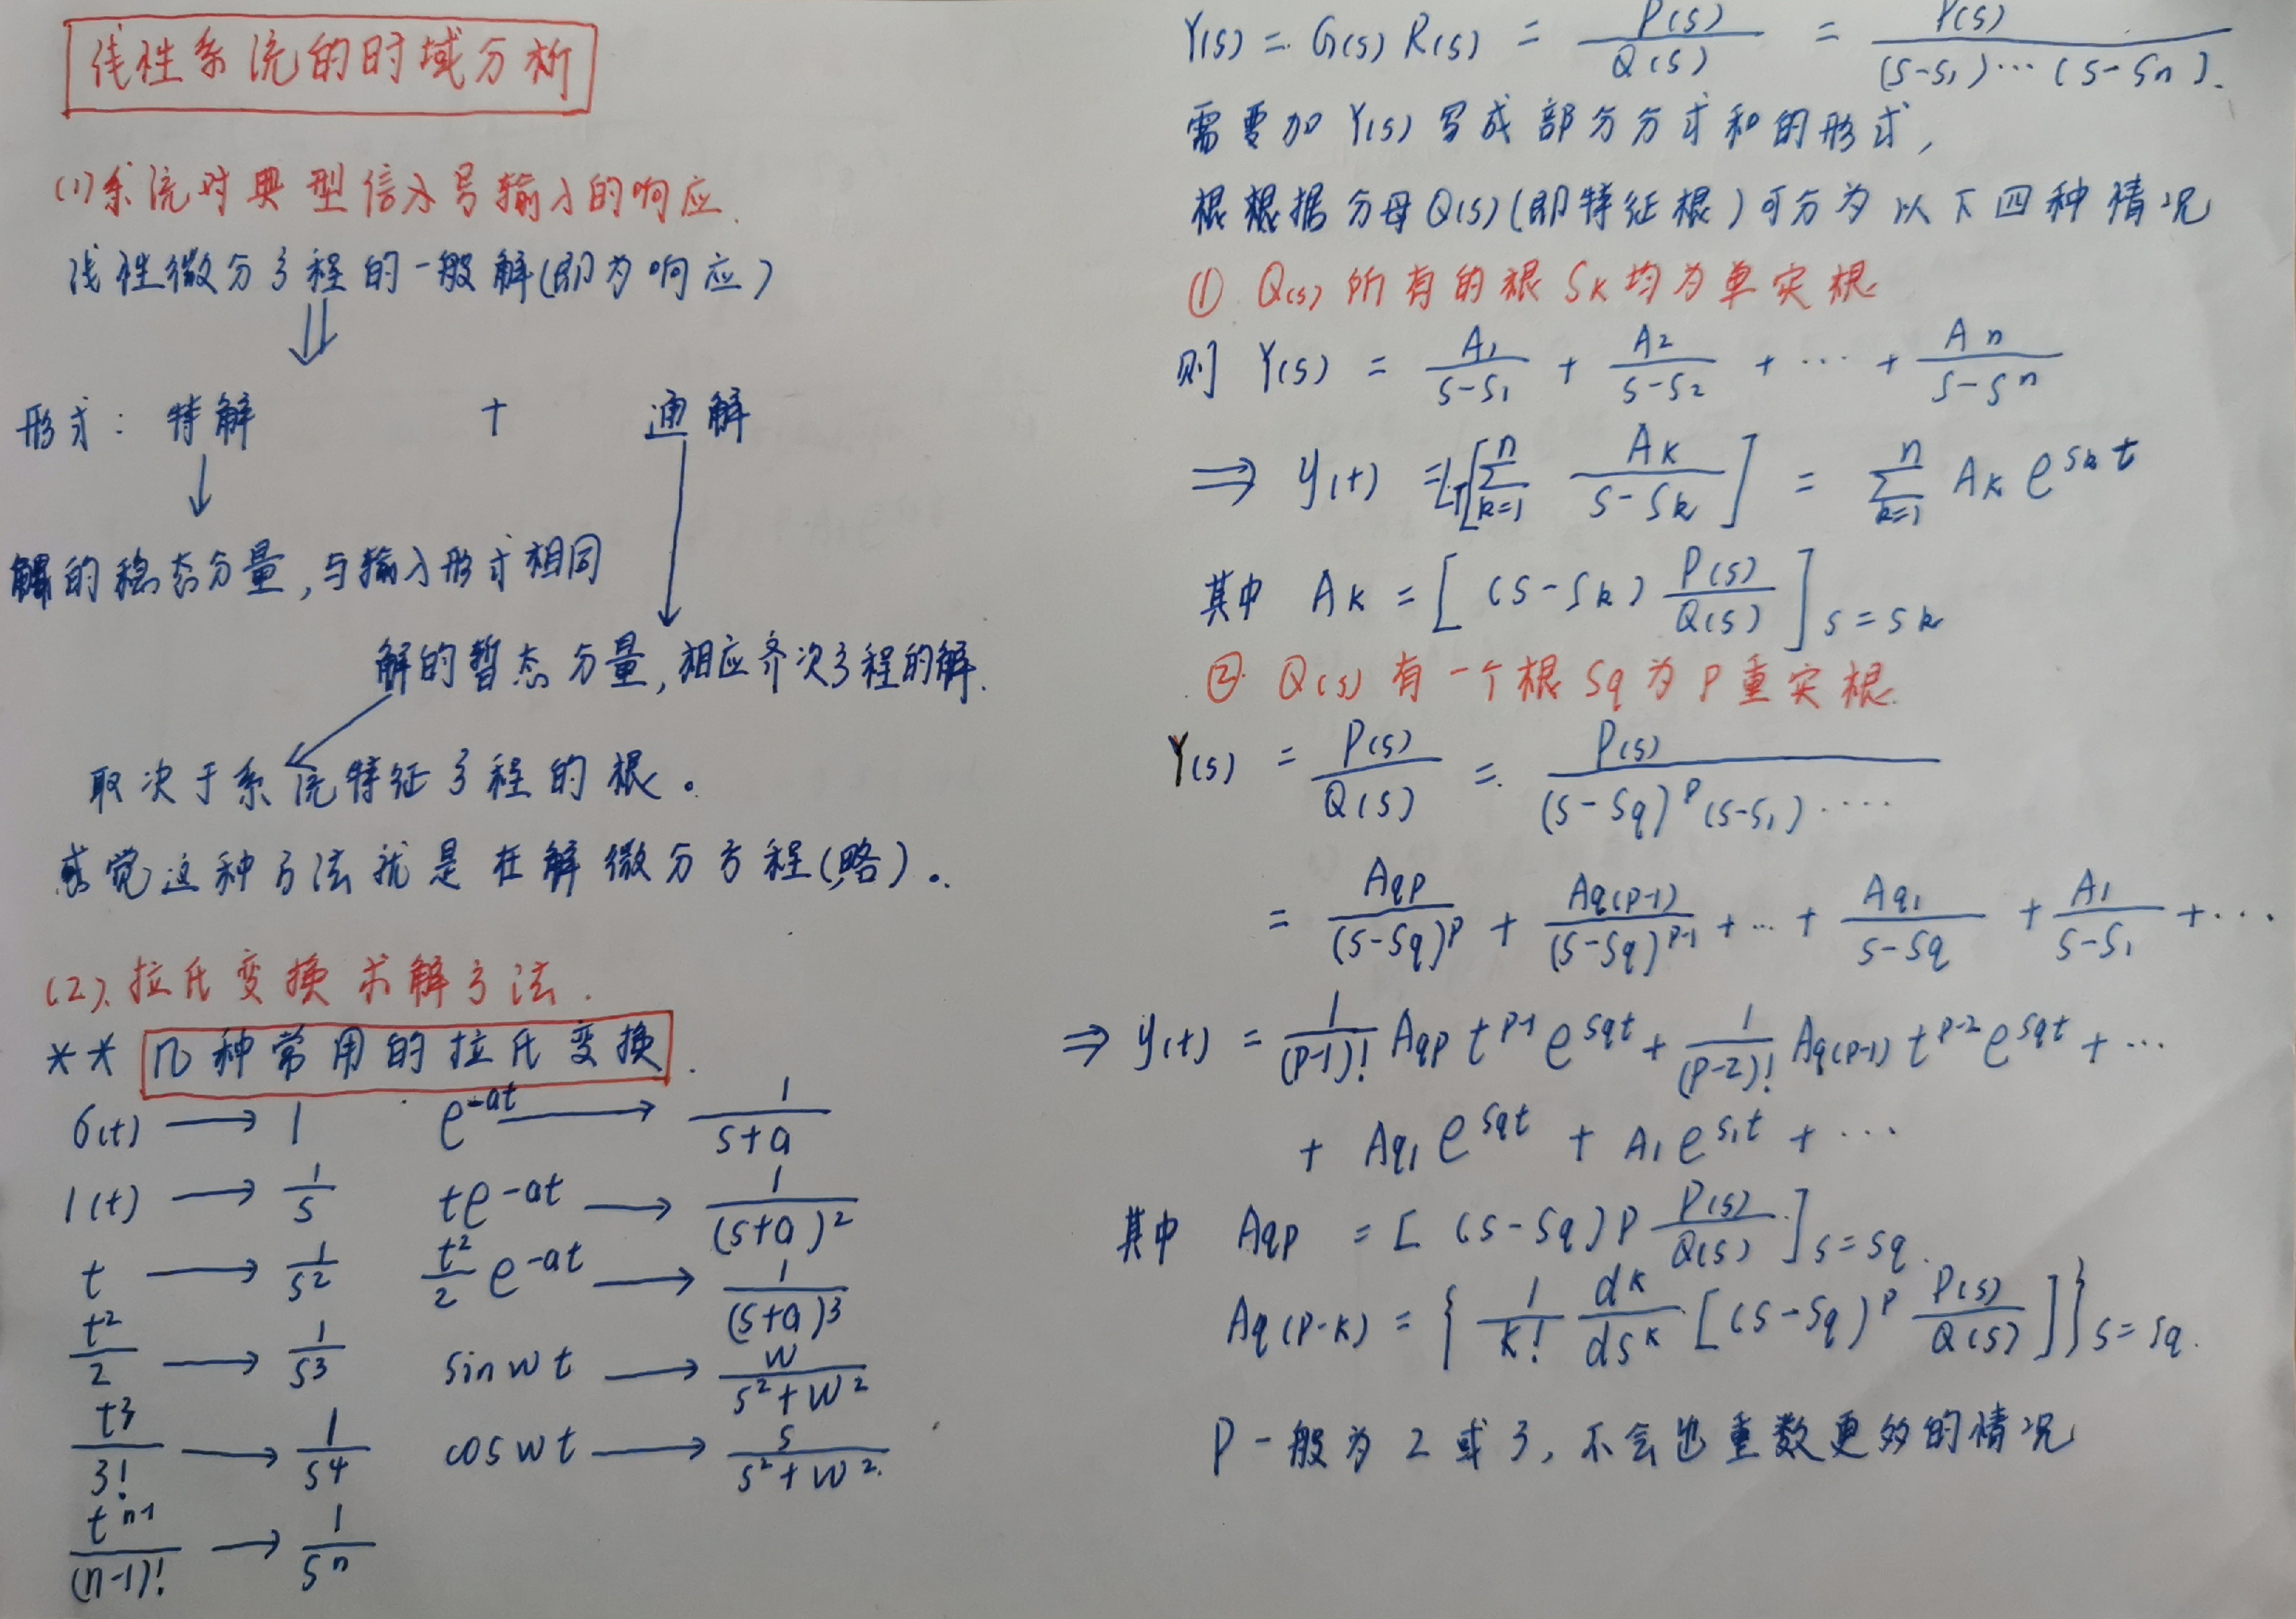 线性系统的时域分析
(1)系统对典型信号输入的响应.
线性微分方程的一般解(即为响应)
⇓
形式: 特解 + 通解
解的稳态分量,与输入形式相同
解的暂态分量,相应齐次方程的解.
取决于系统特征方程的根。
感觉这种方法就是在解微分方程(略)。
(2).拉氏变换求解方法.
** 几种常用的拉氏变换.
δ(t) → 1  e^{-at} → 1/(s+a)
1(t) → 1/s  te^{-at} → 1/(s+a)^2
t → 1/s^2  t^2/2 e^{-at} → 1/(s+a)^3
t^2/2 → 1/s^3  sinwt → w/(s^2+w^2)
t^3/3! → 1/s^4  coswt → s/(s^2+w^2)
t^{n-1}/(n-1)! → 1/s^n
Y(s) = G(s) R(s) = P(s)/Q(s) = P(s)/((s-s_1)…(s-s_n)).
需要加Y(s)写成部分分式和的形式,
根根据分母Q(s)(即特征根)可分为以下四种情况
① Q(s)所有的根S_k均为单实根
则 Y(s) = A_1/(s-s_1) + A_2/(s-s_2) + … + A_n/(s-s^n)
⇒ y(t) = [∑_{k=1}^{n} A_k/(s-s_k)] = ∑_{k=1}^{n} A_k e^{s_k t}
其中 A_k = [(s-s_k) P(s)/Q(s)]_{s=s_k}
② Q(s)有一个根S_q为P重实根.
Y(s) = P(s)/Q(s) = P(s)/((s-s_q)^P (s-s_1)····)
= A_{qp}/(s-s_q)^P + A_{q(P-1)}/(s-s_q)^{P-1} + … + A_{q1}/(s-s_q) + A_1/(s-s_1) + …
⇒ y(t) = 1/(P-1)! A_{qp} t^{P-1} e^{s_q t} + 1/(P-2)! A_{q(P-1)} t^{P-2} e^{s_q t} + …
+ A_{q1} e^{s_q t} + A_1 e^{s_1 t} + …
其中 A_{qp} = [(s-s_q)P P(s)/Q(s)]_{s=s_q}.
A_{q(P-K)} = {1/K! d^K/ds^K [(s-s_q)^P P(s)/Q(s)]}_{s=s_q}.
P一般为2或3,不会出重数更多的情况